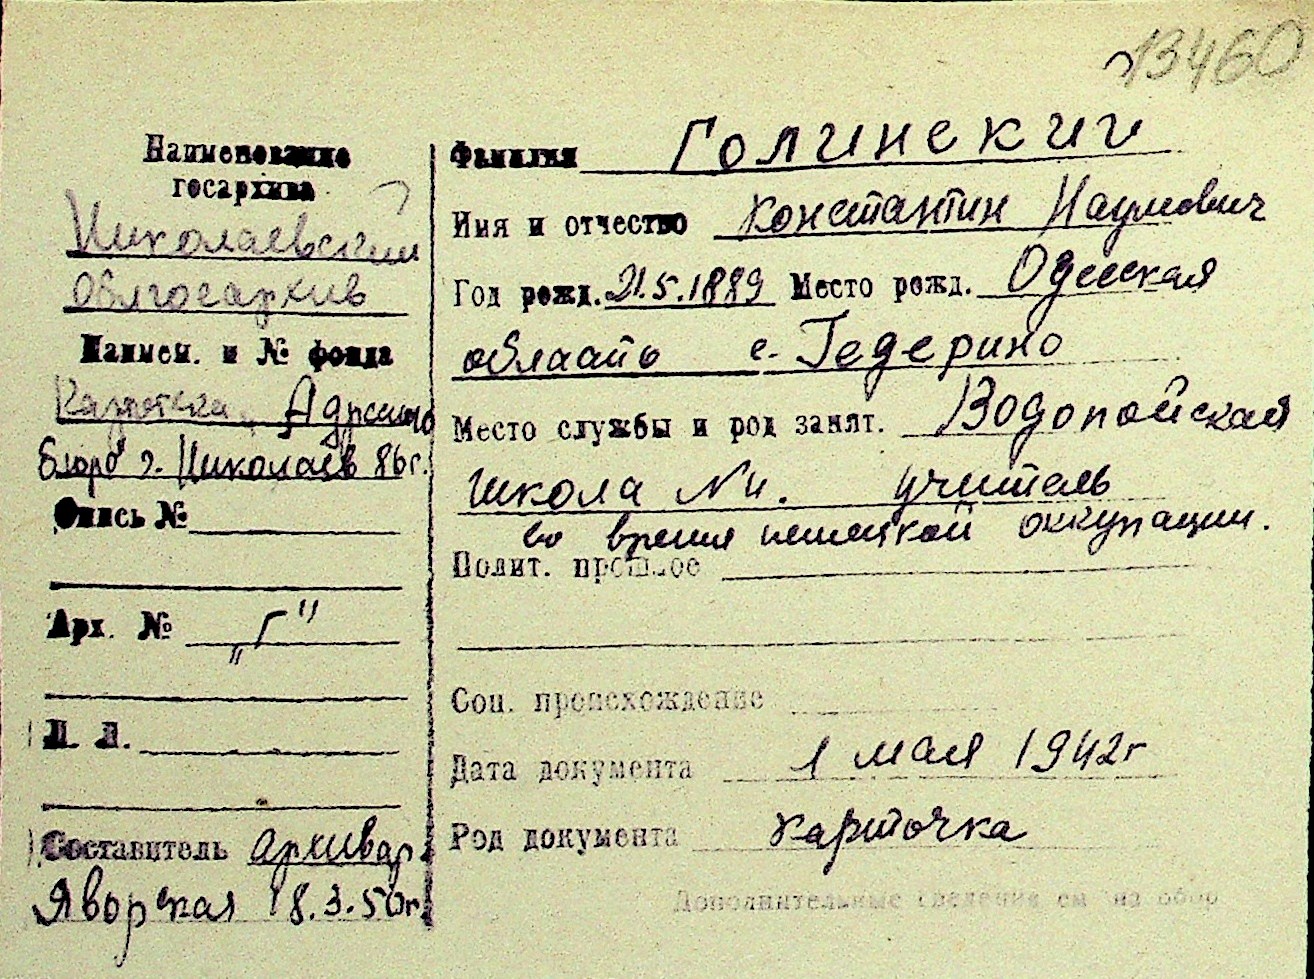 13460
Наименование
госархива
Николаевский
Облгосархив
Наимен. и № фонда
Картотека „Адресного
бюро" г. Николаев
Опись №
Арх. № „Г"
Л. Л.
Составитель архивар.
Яворская 18.3.50г.
Фамилия Голинский
Имя и отчество Константин Наумович
Год рожд. 21.5.1889 Место рожд. Одесская
область с. Гедерино
Место службы и род занят. Водопойская
школа учитель
во время немецкой оккупации.
Полит. прошлое
Соц. происхождение
Дата документа 1 мая 1942г
Род документа карточка
Дополнительные сведения см на обор